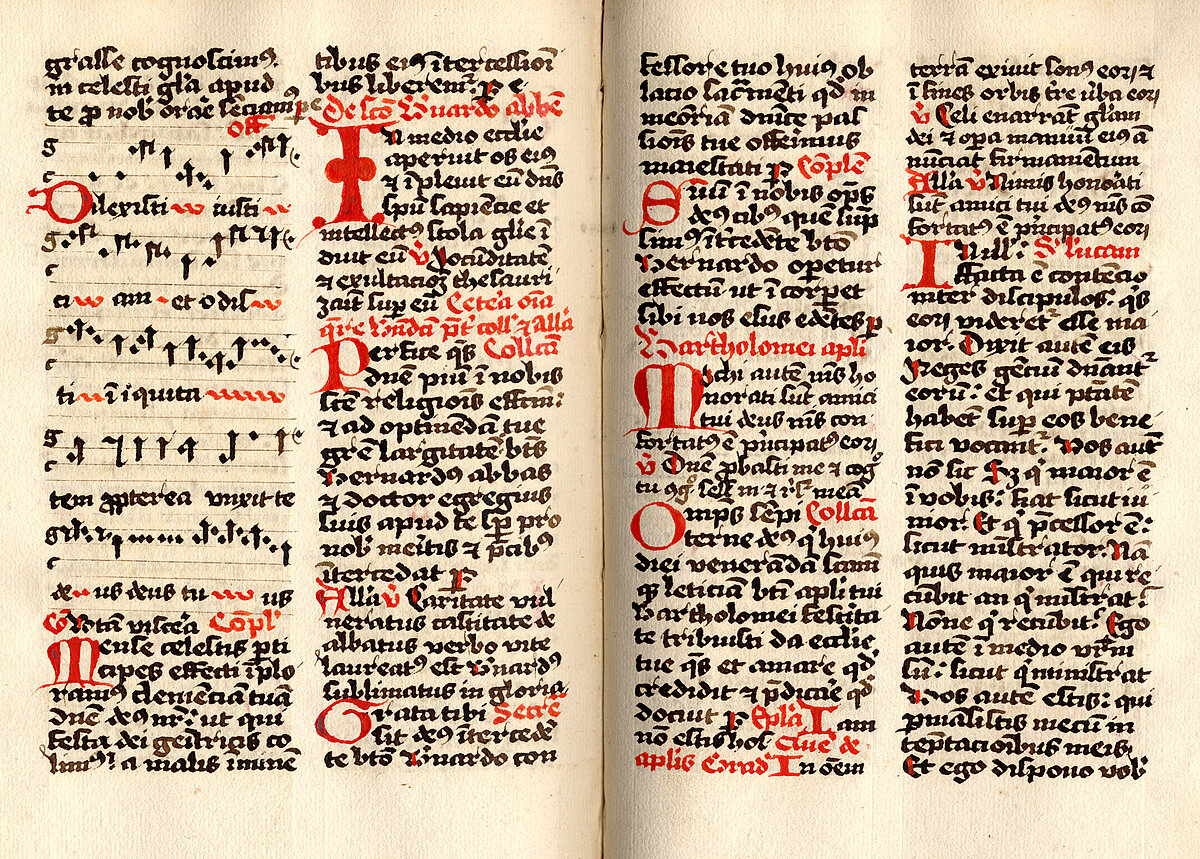 grasse cognoscimus.
in celesti gl'a apud
te p nob' orare sentiamus p e
Off
Dilexisti iusti
ci am et odis
ti i iquita
tem ppterea vnxit te
de us deus tu us
V Notā viscera Cōpl'
Mense celestis pti
cipes effecti iplo
ramus clemēciam tuā
dn̄e deus nr̄: ut qui
festa dei genitricis co
limus: a malis iminē
tibus eius itercessioni
bus liberemur. P e
De scō Bernardo abbē
In medio ecclīe
aperuit os eius
et ipleuit eū dn̄s
spū sapiencie et
intellectus stola gl'ie i
duit eū V Iocūditatē
et exultacioē thesauri
zauit sup eū Cetera oīa
Perfice qs Collcā
dn̄e piū i nobis
scē religiois effcm:
et ad optinendā tue
grē largitatē btūs
Bernardus abbas
et doctor egregius
suis apud te sp pro
nob' meritis et pcibus
itercedat P
All'a V Caritate vul
neratus castitate de
albatus verbo vite
laureatus est Bnardus
sublimatus in gloria
Grata tibi Secrē
sit deus itercedē
te btō Bnardo con
fessore tuo huius ob
lacio sacmēti qd in
meōriam dnīce pas
sionis tue offerimus
maiestati P Cōplē
Suū i nobis opus
deus cibus que sup
simus itcedēte btō
Bernardo operetur
effectū ut i corp et
sibi nos eius edētes p
Bartholomei apli
Michi autē nīs ho
norati sūt amici
tui deus nīs con
fortatus ē pncipatus eorū
V Dn̄e pbasti me et cog
Omps sēpi Collcā
terne deus q huius
diei venerāda scām
q leticiam btī apli tui
Bartholomei festita
te tribuisti da ecclīe
tue qs et amare qd
credidit et pdicare qd
docuit P Epl'a Iam
nō estis hos Gue de
aplis Grad' In oēm
terrā exiuit sonus eorū et
i fines orbis tre uba eorū
V Celi enarrāt gl'am
dei et opa manuū eius ā
nūciat firmamentum
All'a V Nimis honorati
sūt amici tui deus nīs cō
fortatus ē pncipatus eorū
In ill'. S' Lucam
ffacta ē contencio
inter discipulos: qs
eorū videretur esse ma
ior. Dixit autē eis
Reges genciū dn̄ant
eorū: Et qui ptātē
habēt sup eos bene
fici vocantur. Vos aut
nō sic Sz q maior ē
i vobis: fiat sicut iu
nior. Et q pcessor ē:
sicut ministrator. Nā
quis maior ē qui re
cūbit an q ministrat:
Nōne q recūbit: Ego
autē i medio vrm
sū: sicut q ministrat
Vos autē estis: qui
pmāsistis mecū in
teptacionibus meis.
Et ego dispono vob'